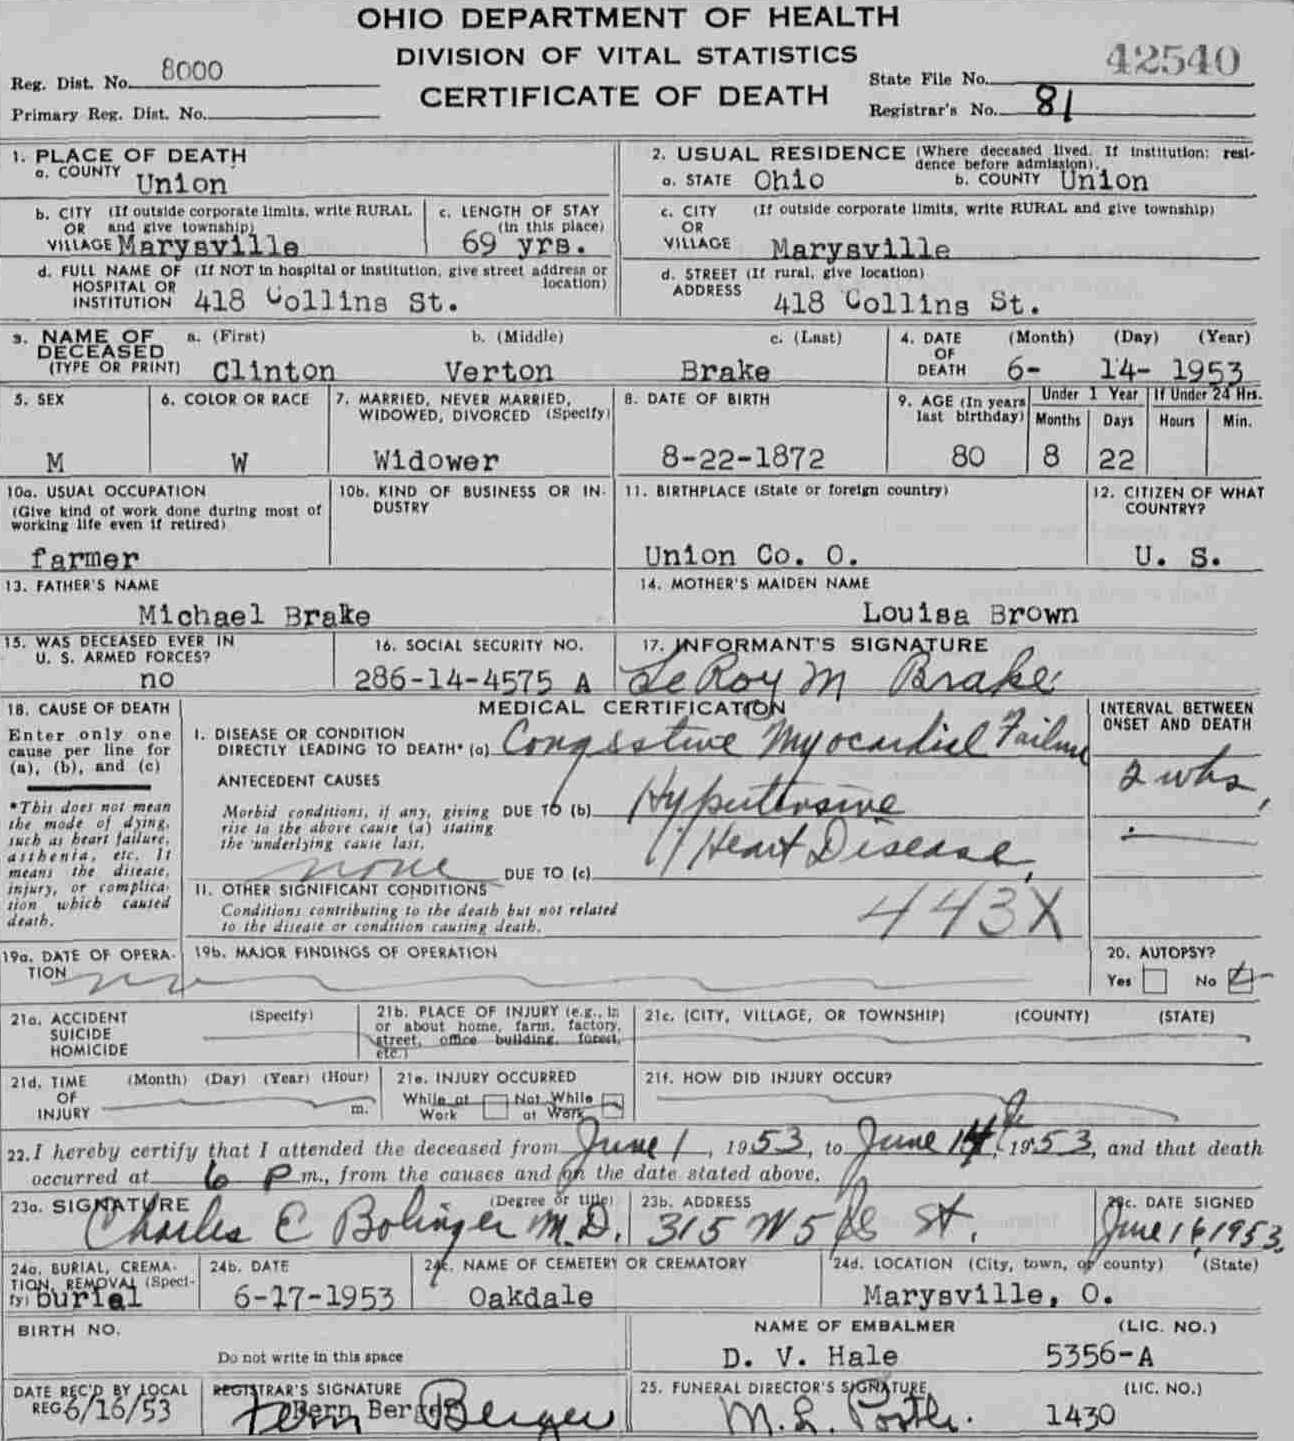 OHIO DEPARTMENT OF HEALTH
DIVISION OF VITAL STATISTICS
CERTIFICATE OF DEATH
Reg. Dist. No. 8000
Primary Reg. Dist. No.
State File No. 42540
Registrar's No. 81
1. PLACE OF DEATH
a. COUNTY Union
2. USUAL RESIDENCE (Where deceased lived. If institution: residence before admission).
a. STATE Ohio b. COUNTY Union
b. CITY (If outside corporate limits, write RURAL
OR and give township)
VILLAGE Marysville
c. LENGTH OF STAY
(in this place)
69 yrs.
c. CITY (If outside corporate limits, write RURAL and give township)
OR
VILLAGE Marysville
d. FULL NAME OF (If NOT in hospital or institution, give street address or
HOSPITAL OR location)
INSTITUTION 418 Collins St.
d. STREET (If rural, give location)
ADDRESS 418 Collins St.
3. NAME OF DECEASED (TYPE OR PRINT)
a. (First) b. (Middle) c. (Last)
Clinton Verton Brake
4. DATE OF DEATH (Month) (Day) (Year)
6- 14- 1953
5. SEX
M
6. COLOR OR RACE
W
7. MARRIED, NEVER MARRIED,
WIDOWED, DIVORCED (Specify)
Widower
8. DATE OF BIRTH
8-22-1872
9. AGE (In years
last birthday)
80
Under 1 Year
Months Days
8 22
If Under 24 Hrs.
Hours Min.
10a. USUAL OCCUPATION
(Give kind of work done during most of
working life even if retired)
farmer
10b. KIND OF BUSINESS OR IN-
DUSTRY
11. BIRTHPLACE (State or foreign country)
Union Co. O.
12. CITIZEN OF WHAT
COUNTRY?
U. S.
13. FATHER'S NAME
Michael Brake
14. MOTHER'S MAIDEN NAME
Louisa Brown
15. WAS DECEASED EVER IN
U. S. ARMED FORCES?
no
16. SOCIAL SECURITY NO.
286-14-4575 A
17. INFORMANT'S SIGNATURE
LeRoy M Brake
18. CAUSE OF DEATH
Enter only one
cause per line for
(a), (b), and (c)
*This does not mean
the mode of dying,
such as heart failure,
asthenia, etc. It
means the disease,
injury, or complica-
tion which caused
death.
MEDICAL CERTIFICATION
I. DISEASE OR CONDITION
DIRECTLY LEADING TO DEATH* (a) Congestive Myocardial Failure
ANTECEDENT CAUSES
Morbid conditions, if any, giving
rise to the above cause (a) stating
the underlying cause last.
DUE TO (b) Hypertensive
Heart Disease,
none
DUE TO (c)
II. OTHER SIGNIFICANT CONDITIONS
Conditions contributing to the death but not related
to the disease or condition causing death.
443X
INTERVAL BETWEEN
ONSET AND DEATH
2 wks,
19a. DATE OF OPERA-
TION
19b. MAJOR FINDINGS OF OPERATION
20. AUTOPSY?
Yes No
21a. ACCIDENT
SUICIDE
HOMICIDE
(Specify)
21b. PLACE OF INJURY (e.g., in
or about home, farm, factory,
street, office building, forest,
etc.)
21c. (CITY, VILLAGE, OR TOWNSHIP) (COUNTY) (STATE)
21d. TIME (Month) (Day) (Year) (Hour)
OF
INJURY m.
21e. INJURY OCCURRED
While at Work Not While at Work
21f. HOW DID INJURY OCCUR?
22. I hereby certify that I attended the deceased from June 1, 1953, to June 14, 1953, and that death
occurred at 6 P m., from the causes and on the date stated above.
23a. SIGNATURE (Degree or title)
Charles E Bolinger M.D.
23b. ADDRESS
315 W 5th St.
23c. DATE SIGNED
June 16, 1953.
24a. BURIAL, CREMA-
TION, REMOVAL (Speci-
fy) burial
24b. DATE
6-17-1953
24c. NAME OF CEMETERY OR CREMATORY
Oakdale
24d. LOCATION (City, town, or county) (State)
Marysville, O.
BIRTH NO.
Do not write in this space
NAME OF EMBALMER (LIC. NO.)
D. V. Hale 5356-A
DATE REC'D BY LOCAL
REG. 6/16/53
REGISTRAR'S SIGNATURE
Berger
25. FUNERAL DIRECTOR'S SIGNATURE (LIC. NO.)
M. L. 1430